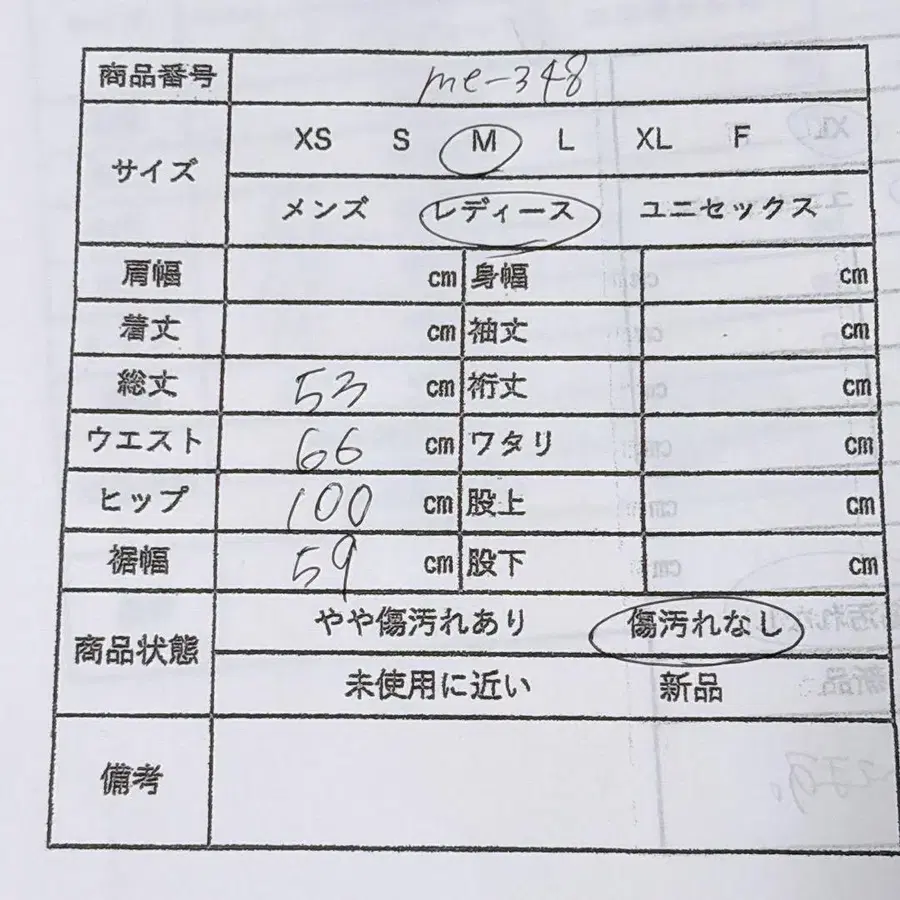 商品番号 me-348
サイズ XS S M L XL F
メンズ レディース ユニセックス
肩幅 cm 身幅 cm
着丈 cm 袖丈 cm
総丈 53 cm 裄丈 cm
ウエスト 66 cm ワタリ cm
ヒップ 100 cm 股上 cm
裾幅 59 cm 股下 cm
商品状態 やや傷汚れあり 傷汚れなし
未使用に近い 新品
備考